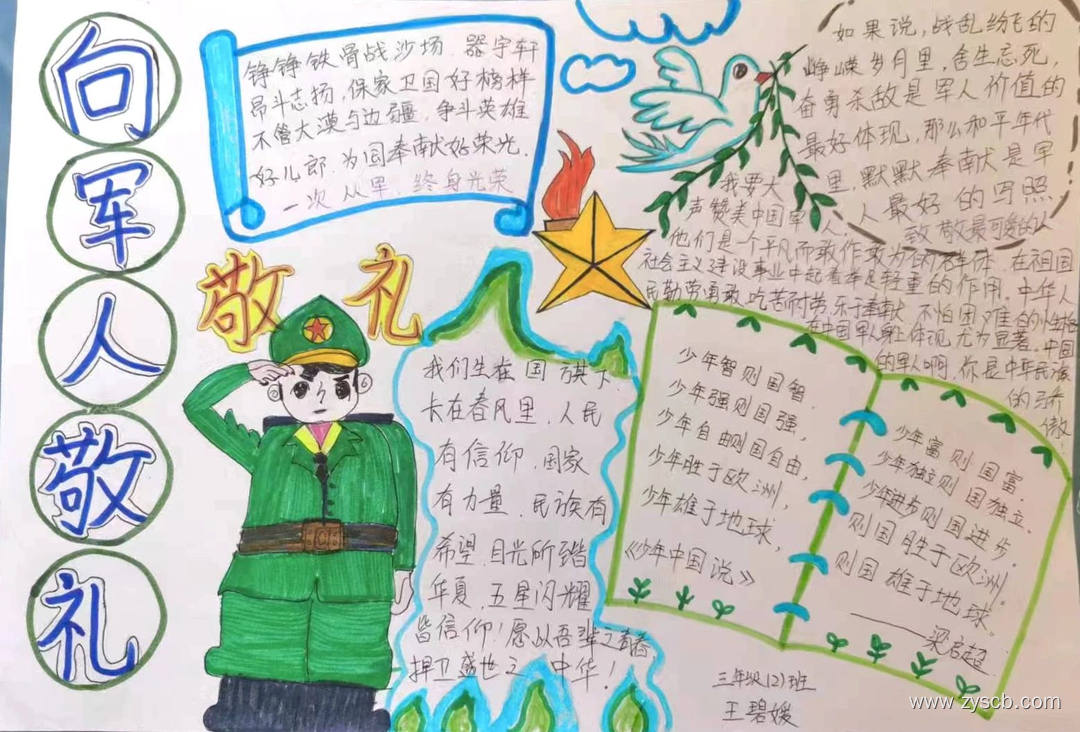 向
军
人
敬
礼
铮铮铁骨战沙场.器宇轩
昂斗志扬,保家卫国好榜样
不管大漠与边疆.争斗英雄
好儿郎.为国奉献好荣光.
一次从军.终身光荣
敬礼
如果说,战乱纷飞的
峥嵘岁月里,舍生忘死,
奋勇杀敌是军人价值的
最好体现,那么和平年代
里,默默奉献是军
人最好的写照
致敬最可爱的人
我要大
声赞美中国军人
他们是一个平凡而敢作敢为的群体.在祖国
社会主义建设事业中起着举足轻重的作用.中华人
民勤劳勇敢,吃苦耐劳,乐于奉献,不怕困难的性格
在中国军人身上体现尤为显著.中国
的军人啊,你是中华民族
的骄
傲.
我们生在国旗下.
长在春风里,人民
有信仰.国家
有力量.民族有
希望.目光所至
华夏.五星闪耀
皆信仰!愿以吾辈之青春
捍卫盛世之中华!
少年智则国智.
少年强则国强,
少年自由则国自由,
少年胜于欧洲,
少年雄于地球,
《少年中国说》
少年富则国富
少年独立则国独立.
少年进步则国进步.
则国胜于欧洲.
则国雄于地球.
——梁启超
三年级(2)班
王碧媛
www.zyscb.com